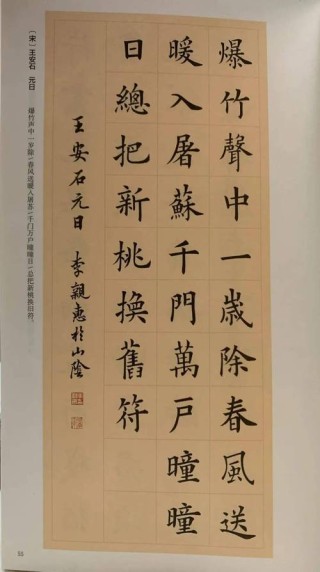 爆竹聲中一歲除春風送
暖入屠蘇千門萬戶曈曈
日總把新桃換舊符
王安石元日 李親惠於山陰
〔宋〕王安石 元日
爆竹声中一岁除，春风送暖入屠苏。千门万户曈曈日，总把新桃换旧符。